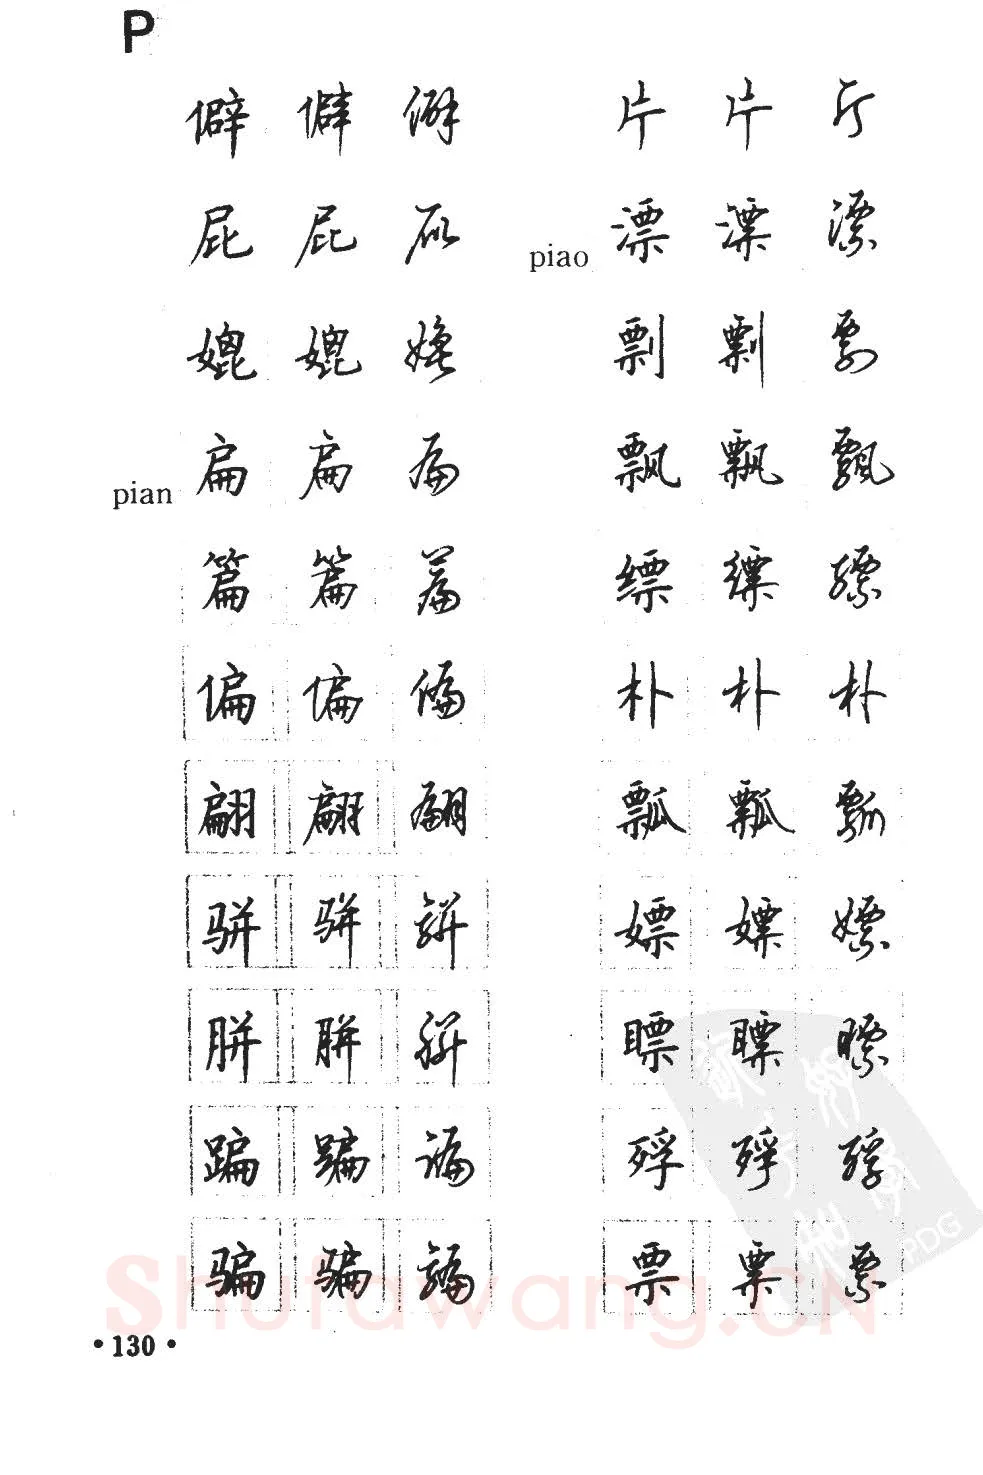 P
僻 僻 僻
屁 屁 屁
媲 媲 媲
pian 扁 扁 扁
篇 篇 篇
偏 偏 偏
翩 翩 翩
骈 骈 骈
胼 胼 胼
蹁 蹁 蹁
骗 骗 骗
片 片 片
piao 漂 漂 漂
剽 剽 剽
飘 飘 飘
缥 缥 缥
朴 朴 朴
瓢 瓢 瓢
嫖 嫖 嫖
瞟 瞟 瞟
殍 殍 殍
票 票 票
·130·
Shufawang.CN
PDG